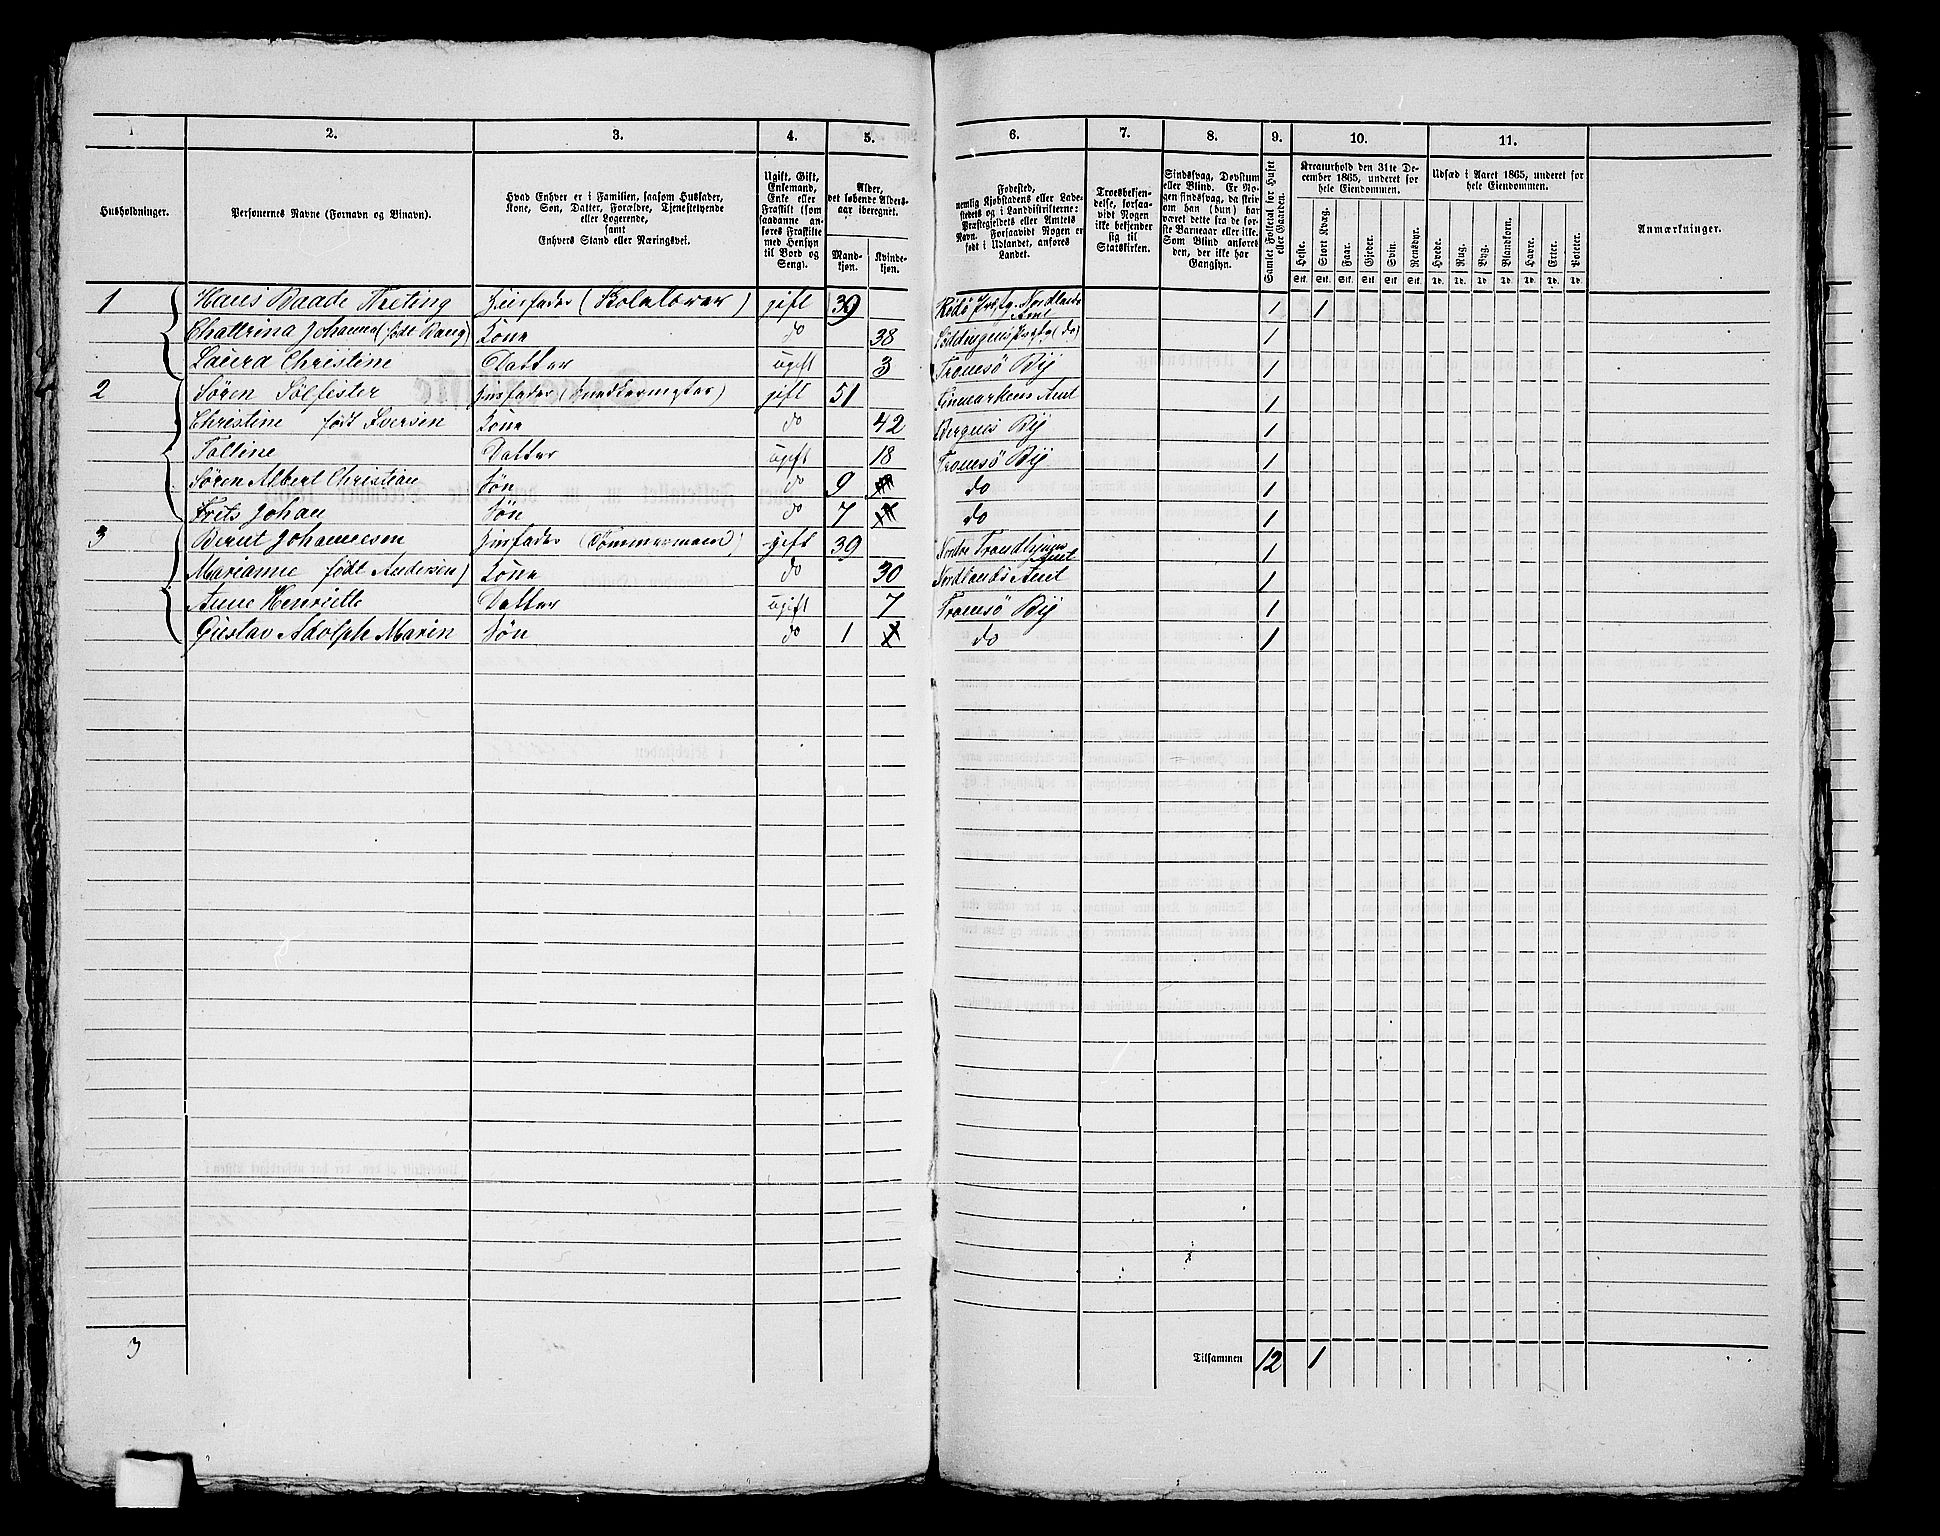 1 2. 3. 4. 5. 6. 7. 8. 9. 10. 11.
Husholdninger.
Personernes Navne (Fornavn og Binavn).
Hvad Enhver er i Familien, saasom Husfader,
Kone, Søn, Datter, Forældre, Tjenestetyende
eller Logerende,
samt
Enhvers Stand eller Næringsvei.
Ugift, Gift,
Enkemand,
Enke eller
Fraskilt (som
saadanne an-
føres Fraskilte
med Hensyn
til Bord og
Seng).
Alder,
det løbende Alders-
aar iberegnet.
Mand-
kjøn.
Kvinde-
kjøn.
Fødested,
nemlig Kjøbstadens eller Lade-
stedets og i Landdistrikterne:
Præstegjeldets eller Amtets
Navn. Forsaavidt Nogen er
født i Udlandet, anføres
Landet.
Troesbekjen-
delse, forsaa-
vidt Nogen
ikke bekjender
sig til
Statskirken.
Sindssvag, Døvstum
eller Blind. Er No-
gen sindssvag, da skri-
ves om han (hun) har
været dette fra de før-
ste Barneaar eller ikke.
Som Blind anføres
den, der ikke har
Gangsyn.
Samlet Folketal for Huset
eller Gaarden.
Kreaturhold den 31te De-
cember 1865, underet for
hele Eiendommen.
Heste. Stort Kvæg. Faar. Gjeder. Svin. Rensdyr.
Stk. Stk. Stk. Stk. Stk. Stk.
Udsæd i Aaret 1865, underet for
hele Eiendommen.
Hvede. Rug. Byg. Blandkorn. Havre. Erter. Poteter.
Td. Td. Td. Td. Td. Td. Td.
Anmærkninger.
1 Hans Baade Hveting Husfader ( ) gift 39 Rødø Præstg. Nordlands Amt 1 1
Chattrina Johanna (født Bang) Kone do 38 Løddingens Prstg (do) 1
Laura Christine Datter ugift 3 Tromsø By 1
2 Søren Sølfester Husfader ( ) gift 51 Finmarkens Amt 1
Christine født Iversen Kone do 42 Bergens By 1
Talline Datter ugift 18 Tromsø By 1
Søren Albert Christian Søn do 9 do 1
Frits Johan Søn do 7 do 1
3 Bernt Johannesen Husfader (Tømmermand) gift 39 Nordre Trondhjems Amt 1
Marianne født Andersen) Kone do 30 Nordlands Amt 1
Anne Henriette Datter ugift 7 Tromsø By 1
Gustav Adolph Marin Søn do 1 do 1
3 Tilsammen 12 1